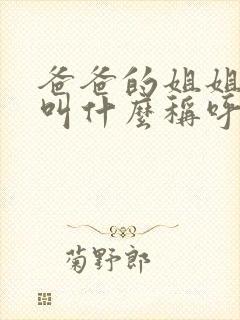 爸爸的姐姐
叫什麼稱呼
菊野郎